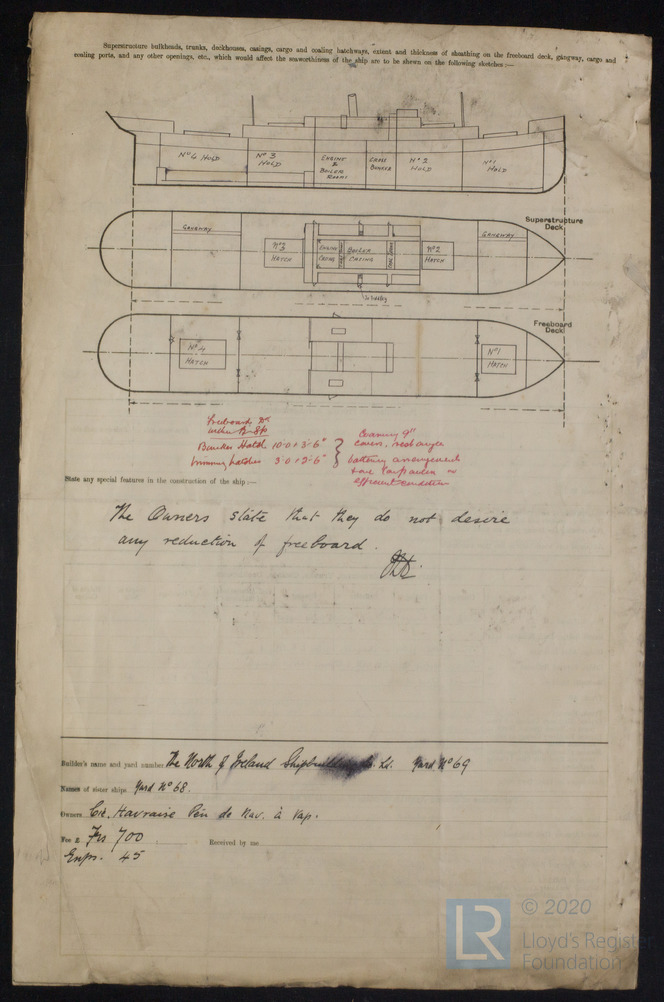 Superstructure bulkheads, trunks, deckhouses, casings, cargo and coaling hatchways, extent and thickness of sheathing on the freeboard deck, gangway, cargo and
coaling ports, and any other openings, etc., which would affect the seaworthiness of the ship are to be shewn on the following sketches :—
No 4 HOLD
No 3 HOLD
ENGINE & BOILER ROOMS
CROSS BUNKER
No 2 HOLD
No 1 HOLD
Superstructure
Deck
GANGWAY
No 3 HATCH
ENGINE CASING
BOILER CASING
No 2 HATCH
GANGWAY
Freeboard
Deck
No 4 HATCH
No 1 HATCH
Freeboard Dk
within Br. Sp.
Bunker Hatch 10'0 x 3'6"
trimming hatches 3'0 x 2'6"
Coaming 9"
covers, cleat angle
battening arrangements
tarpaulin in
efficient condition
State any special features in the construction of the ship :—
The Owners state that they do not desire
any reduction of freeboard.
Builder's name and yard number The North of Ireland Shipbuilding Co. Ld. Yard No 69
Names of sister ships Yard No 68.
Owners Cie. Havraise Pén de Nav. à Vap.
Fee £ Frs 700 Received by me
Exps. 45
LR
© 2020
Lloyd's Register
Foundation